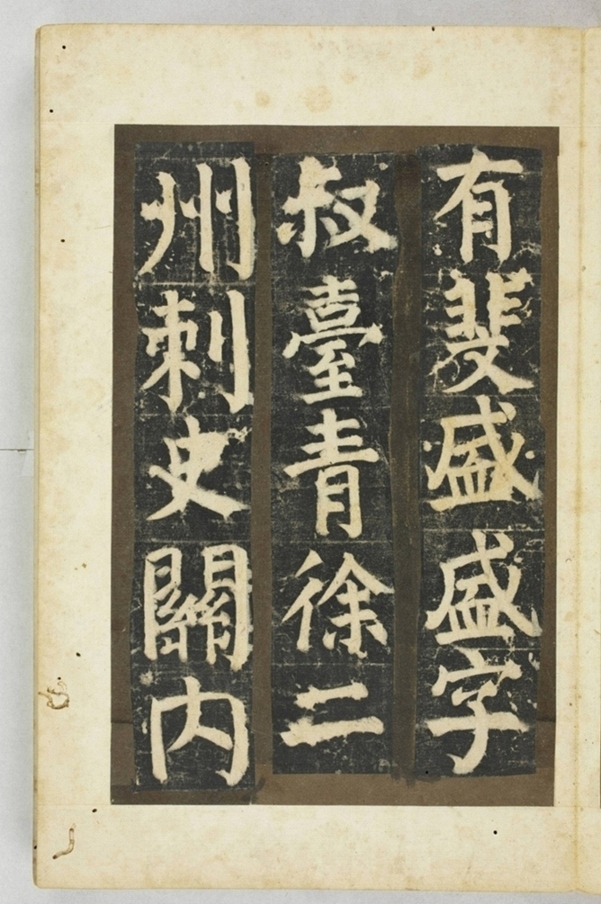 有斐盛盛字
叔臺青徐二
州刺史關内